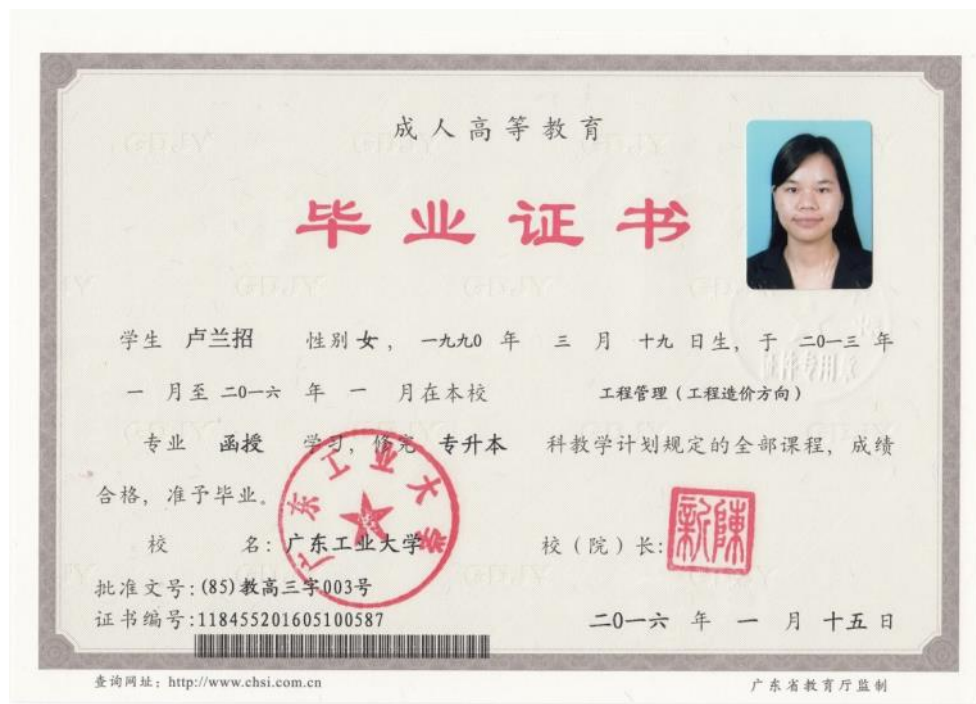 成人高等教育
毕业证书
学生 卢兰招 性别 女， 一九九0 年 三 月 十九 日生，于 二0一三 年
一 月至 二0一六 年 一 月在本校 工程管理（工程造价方向）
专业 函授 学习，修完 专升本 科教学计划规定的全部课程，成绩
合格，准予毕业。
校 名：广东工业大学 校（院）长：
陳新
广东工业大学
批准文号：(85)教高三字003号
证书编号：118455201605100587
二0一六 年 一 月 十五 日
查询网址：http://www.chsi.com.cn
广东省教育厅监制